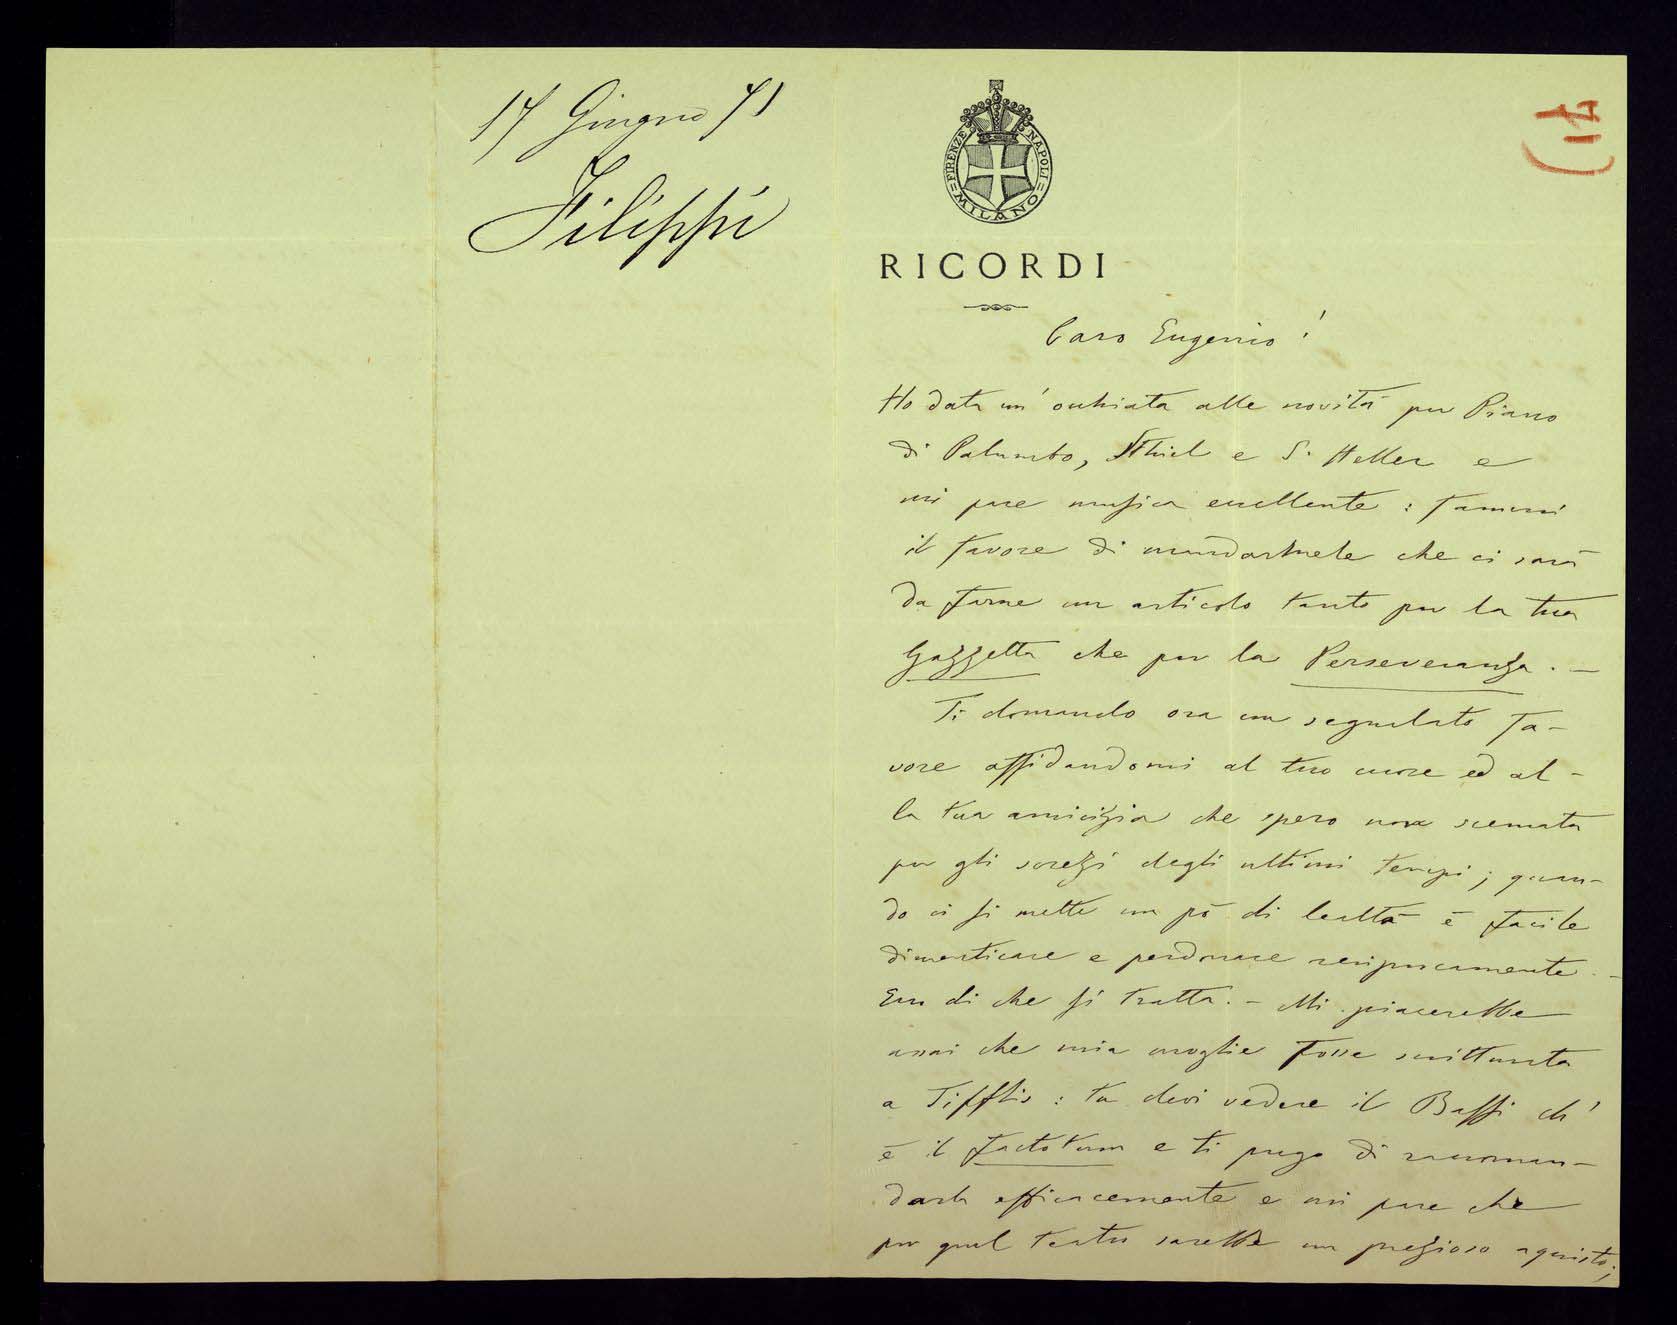 17 Giugno 71
Filippi
FIRENZE NAPOLI MILANO
RICORDI
Caro Eugenio!
Ho data un' occhiata alle novità per Piano
di Palumbo, e S. Heller e
mi pare musica eccellente: fammi
il favore di mandarmele che ci sarà
da farne un articolo tanto per la tua
Gazzetta che per la Perseveranza. —
Ti domando ora un segnalato fa-
vore affidandomi al tuo cuore ed al-
la tua amicizia che spero non scemata
per gli screzi degli ultimi tempi; quan-
do ci si mette un pò di lealtà è facile
dimenticare e perdonare reciprocamente. —
Ecco di che si tratta. — Mi piacerebbe
assai che mia moglie fosse scritturata
a Tifflis: tu devi vedere il Baffi ch'
è il factotum e ti prego di raccoman-
darla efficacemente e mi pare che
per quel teatro sarebbe un prezioso aquisto;